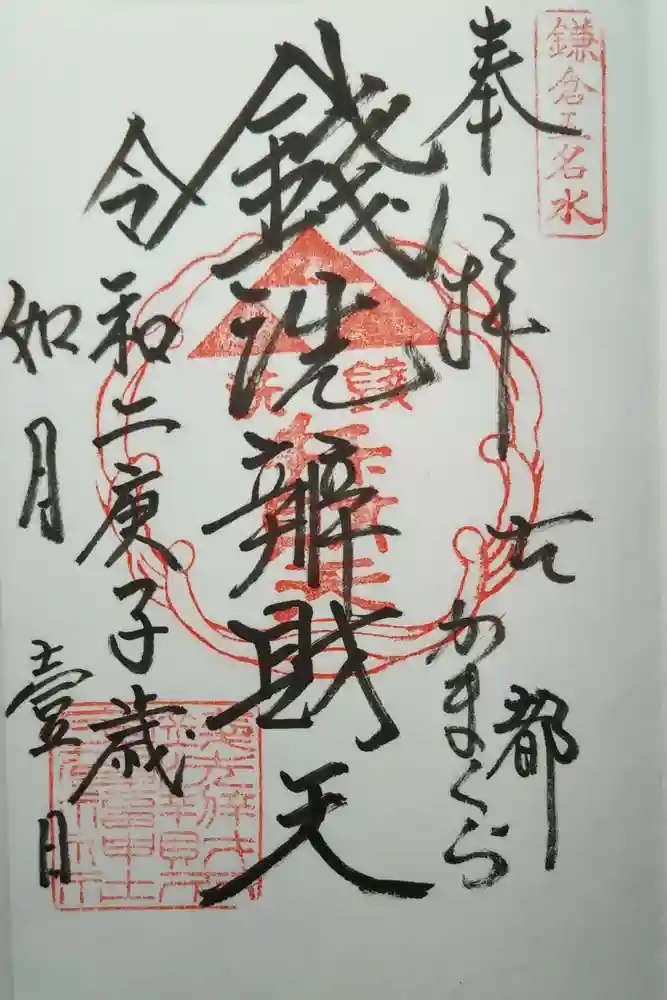 鎌倉五名水
奉拝
古都
かまくら
銭洗辨財天
銭洗
令和二庚子歳
如月
壹日